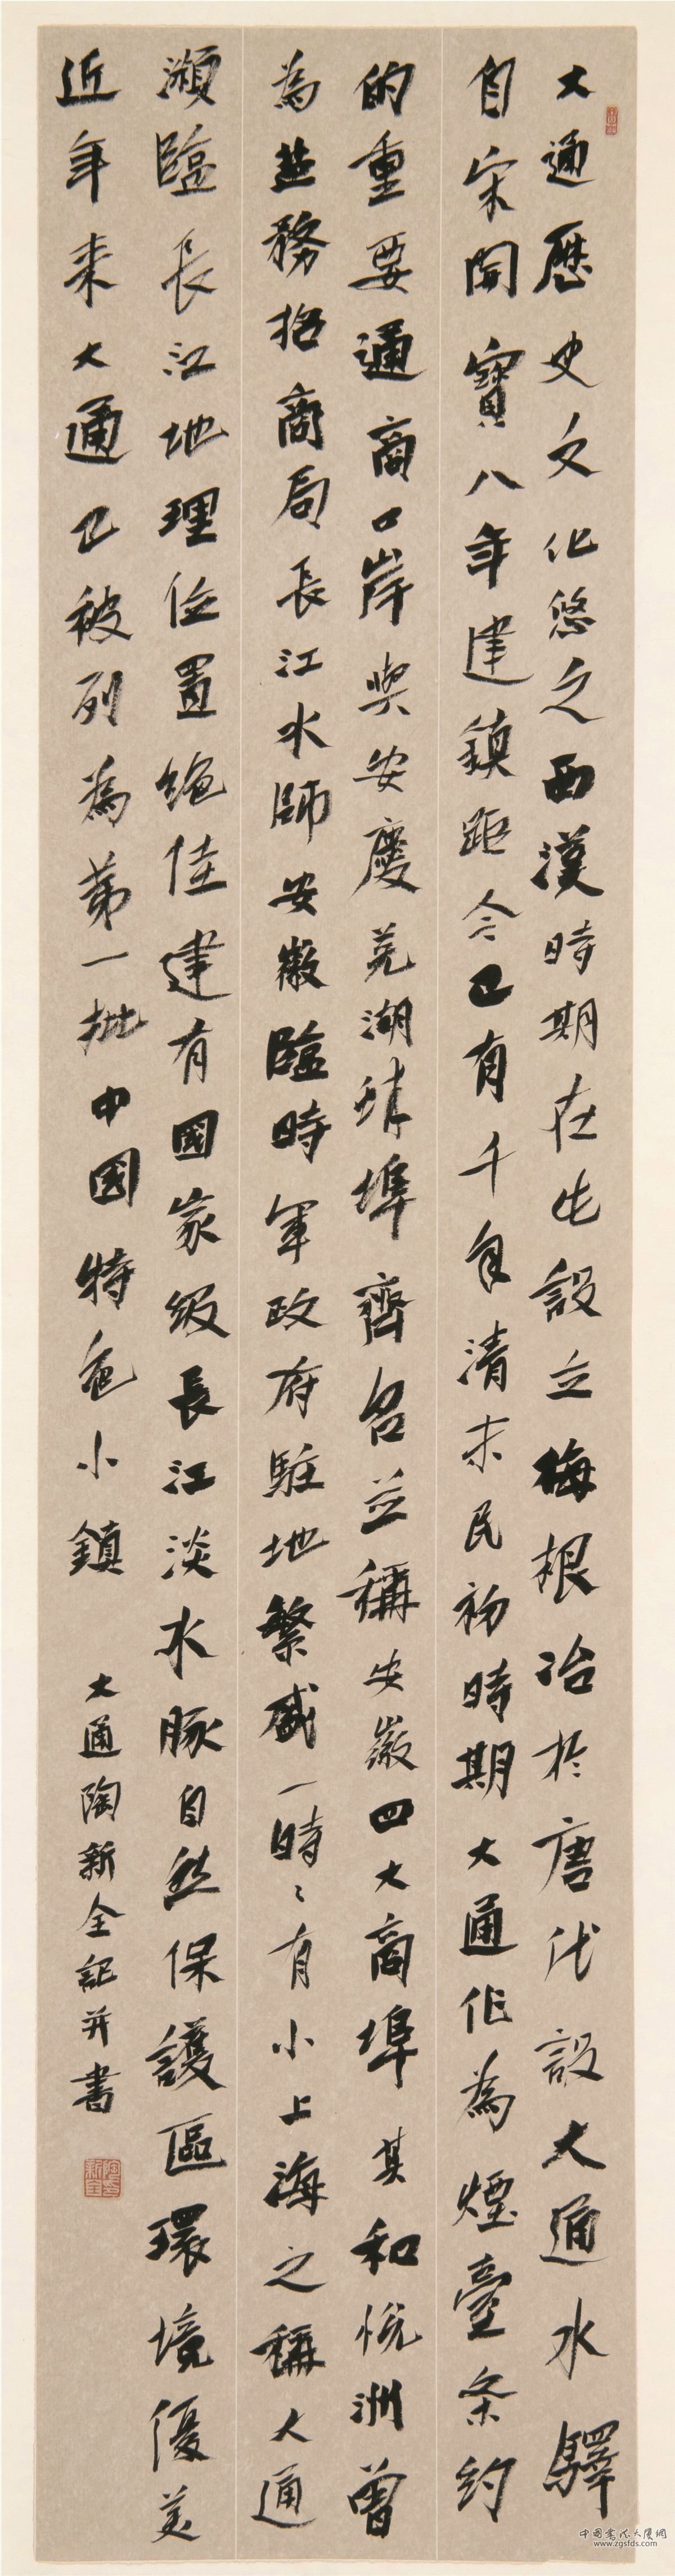 大通歷史文化悠久西漢時期在此設立梅根冶於唐代設大通水驛
自宋開寶八年建鎮距今已有千年清末民初時期大通作為煙臺条約
的重要通商口岸與安慶芜湖蚌埠齊名並稱安徽四大商埠其和悦洲曾
為盐務招商局長江水師安徽臨時軍政府駐地繁盛一時〻有小上海之稱大通
瀕臨長江地理位置絶佳建有國家級長江淡水豚自然保護區環境優美
近年来大通已被列為第一批中國特色小鎮
大通陶新全記并書
中國書法大厦網
www.zgsfds.com